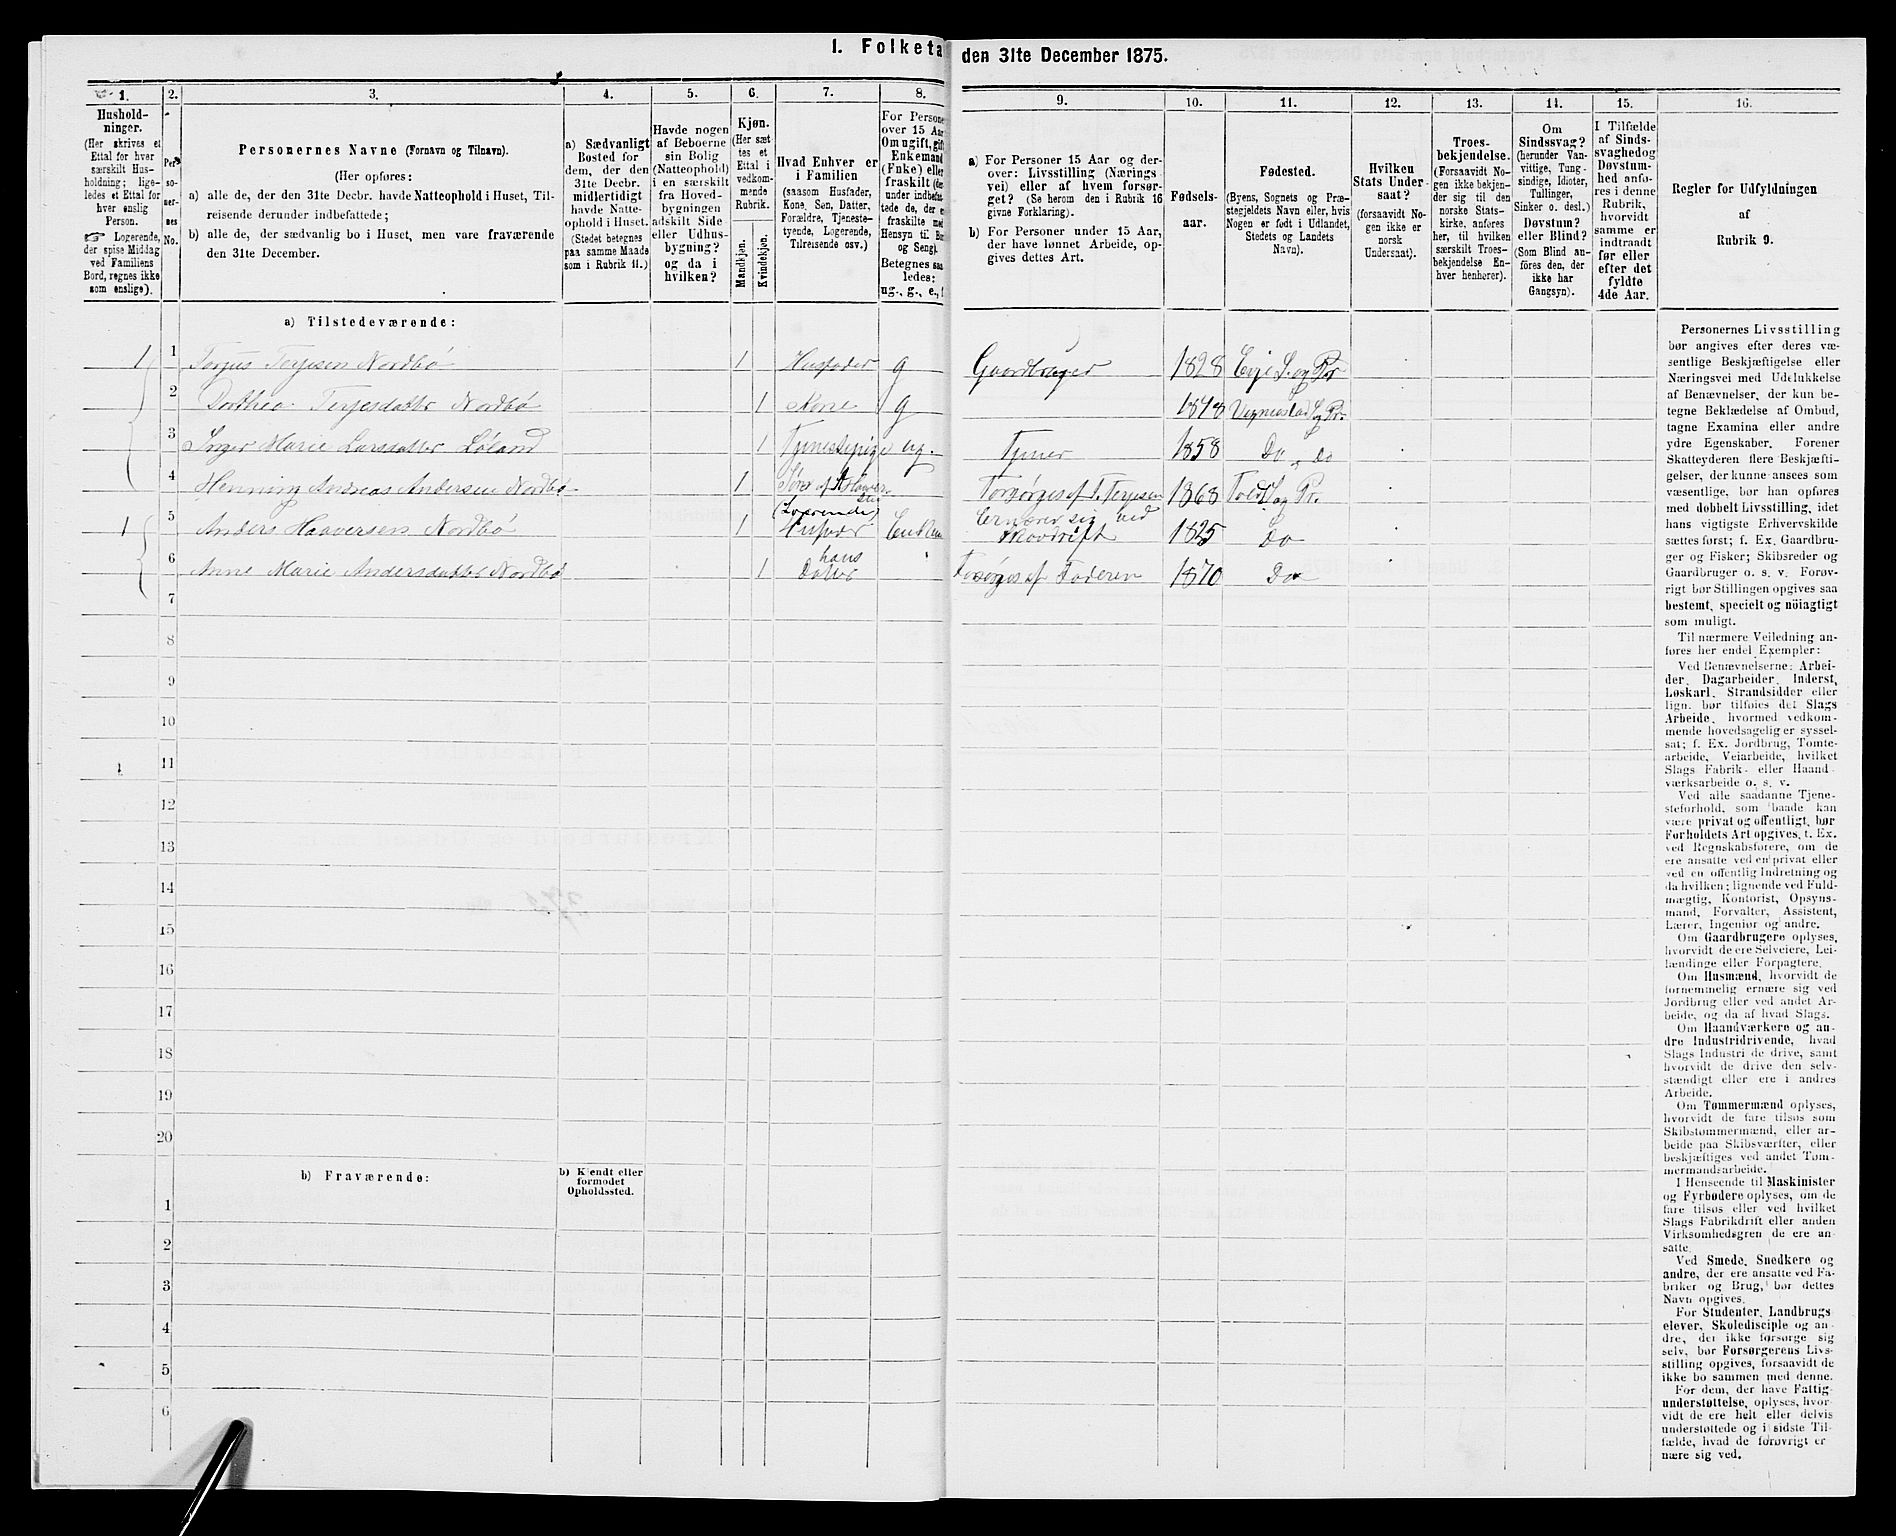 I. Folketæ
den 31te December 1875.
1.
2.
3.
4.
5.
6.
7.
8.
9.
10.
11.
12.
13.
14.
15.
16.
Hushold-
ninger.
(Her skrives et
Ettal for hver
særskilt Hus-
holdning; lige-
ledes et Ettal for
hver enslig
Person.
☞ Logerende,
der spise Middag
ved Familiens
Bord, regnes ikke
som enslige).
Per-
so-
ner-
nes
No.
Personernes Navne (Fornavn og Tilnavn).
(Her opføres:
a) alle de, der den 31te Decbr. havde Natteophold i Huset, Til-
reisende derunder indbefattede;
b) alle de, der sædvanlig bo i Huset, men vare fraværende
den 31te December.
a) Sædvanligt
Bosted for
dem, der den
31te Decbr.
midlertidigt
havde Natte-
ophold i Huset.
(Stedet betegnes
paa samme Maade
som i Rubrik 11.)
Havde nogen
af Beboerne
sin Bolig
(Natteophold)
i en særskilt
fra Hoved-
bygningen
adskilt Side-
eller Udhus-
bygning?
og da i
hvilken?
Kjøn.
(Her sæt
tes et
Ettal i
vedkom-
mende
Rubrik.
Mandkjøn.
Kvindekjøn.
Hvad Enhver er
i Familien
(saasom Husfader,
Kone, Søn, Datter,
Forældre, Tjeneste-
tyende, Logerende,
Tilreisende osv.)
For Persone
over 15 Aar
Om ugift, gift
Enkemand
(Enke) elle
fraskilt (de
under indbefat-
tede de, der e
fraskilte m
Hensyn til Bo
og Seng).
Betegnes saa
ledes:
ug., g., e., f
a) For Personer 15 Aar og der-
over: Livsstilling (Nærings-
vei) eller af hvem forsør-
get? (Se herom den i Rubrik 16
givne Forklaring).
b) For Personer under 15 Aar,
der have lønnet Arbeide, op-
gives dettes Art.
Fødsels-
aar.
Fødested.
(Byens, Sognets og Præ-
stegjeldets Navn eller, hvis
Nogen er født i Udlandet,
Stedets og Landets
Navn).
Hvilken
Stats Under-
saat?
(forsaavidt No-
gen ikke er
norsk
Undersaat).
Troes-
bekjendelse.
(Forsaavidt No-
gen ikke bekjen-
der sig til den
norske Stats-
kirke, anføres
her, til hvilken
særskilt Troes-
bekjendelse En-
hver henhører).
Om
Sindssvag?
(herunder Van-
vittige, Tung-
sindige, Idioter,
Tullinger,
Sinker o. desl.)
Døvstum?
eller Blind?
(Som Blind an-
føres den, der
ikke har
Gangsyn).
I Tilfælde
af Sinds-
svaghed og
Døvstum-
hed anfø-
res i denne
Rubrik,
hvorvidt
samme er
indtraadt
før eller
efter det
fyldte
4de Aar.
Regler for Udfyldningen
af
Rubrik 9.
a) Tilstedeværende:
1 1 Torjus Terjesen Nordbö 1 Husfader g Gaardbruger 1828 Evje S. og Pr
2 Dorthea Terjesdatter Nordbö 1 Kone g 1848 Vegusdal S og Pr.
3 Inger Marie Larsdatter Löland 1 Tjenestepige ug. Tjener 1858 Do Do
4 Henning Andreas Andersen Nordbö 1 Forsörges af T. Terjesen 1868
(Logerende)
1 5 Anders Haaversen Nordbö 1 Husfader Ernærer sig ved 1825 Do
hans
6 Anne Marie Andersdatter Nordbö 1 Datter Forsörges af Faderen 1870 Do
7
8
9
10
11
12
13
14
15
16
17
18
19
20
b) Fraværende:
b) Kjendt eller
formodet
Opholdssted.
1
2
3
4
5
6
Personernes Livsstilling
bør angives efter deres væ-
sentlige Beskjæftigelse eller
Næringsvei med Udelukkelse
af Benævnelser, der kun be-
tegne Beklædelse af Ombud,
tagne Examina eller andre
ydre Egenskaber. Forener
Skatteyderen flere Beskjæfti-
gelser, der kunne ansees som
væsentlige, bør han opføres
med dobbelt Livsstilling, idet
hans vigtigste Erhvervskilde
sættes først; f. Ex. Gaardbru-
ger og Fisker; Skibsreder og
Gaardbruger o. s. v. Forøv-
rigt bør Stillingen opgives saa
bestemt, specielt og nöiagtigt
som muligt.
Til nærmere Veiledning an-
føres her endel Exempler:
Ved Benævnelserne: Arbei-
der, Dagarbeider, Inderst,
Løskarl, Strandsidder eller
lign. bør tilføies det Slags
Arbeide, hvormed vedkom-
mende hovedsagelig er syssel-
sat; f. Ex. Jordbrug, Tomte-
arbeide, Veiarbeide, hvilket
Slags Fabrik- eller Haand-
værksarbeide o. s. v.
Ved alle saadanne Tjene-
steforhold, som baade kan
være privat og offentligt, bør
Forholdets Art opgives, t. Ex.
ved Regnskabsførere, om de
ere ansatte ved en privat eller
ved en offentlig Indretning og
da hvilken; lignende ved Fuld-
mægtig, Kontorist, Opsyns-
mand, Forvalter, Assistent,
Lærer, Ingeniør og andre.
Om Gaardbrugere oplyses,
hvorvidt de ere Selveiere, Lei-
lændinge eller Forpagtere.
Om Husmænd, hvorvidt de
fornemmelig ernære sig ved
Jordbrug eller ved andet Ar-
beide, og da af hvad Slags.
Om Haandværkere og an-
dre Industridrivende, hvad
Slags Industri de drive, samt
hvorvidt de drive den selv-
stændigt eller ere i andres
Arbeide.
Om Tømmermænd oplyses,
hvorvidt de fare tilsøs som
Skibstømmermænd, eller ar-
beide paa Skibsværfter, eller
beskjæftiges ved andet Tøm-
mermandsarbeide.
I Henseende til Maskinister
og Fyrbødere oplyses, om de
fare tilsøs eller ved hvilket
Slags Fabrikdrift eller anden
Virksomhedsgren de ere an-
satte.
Ved Smede, Snedkere og
andre, der ere ansatte ved Fa-
briker og Brug, bør dettes
Navn opgives.
For Studenter, Landbrugs-
elever, Skoledisciple og an-
dre, der ikke forsørge sig
selv, bør Forsørgerens Livs-
stilling opgives, forsaavidt de
ikke bo sammen med denne.
For dem, der have Fattig-
understøttelse, oplyses, hvor-
vidt de ere helt eller delvis
understøttede og i sidste Til-
fælde, hvad de forøvrigt er-
nære sig ved.